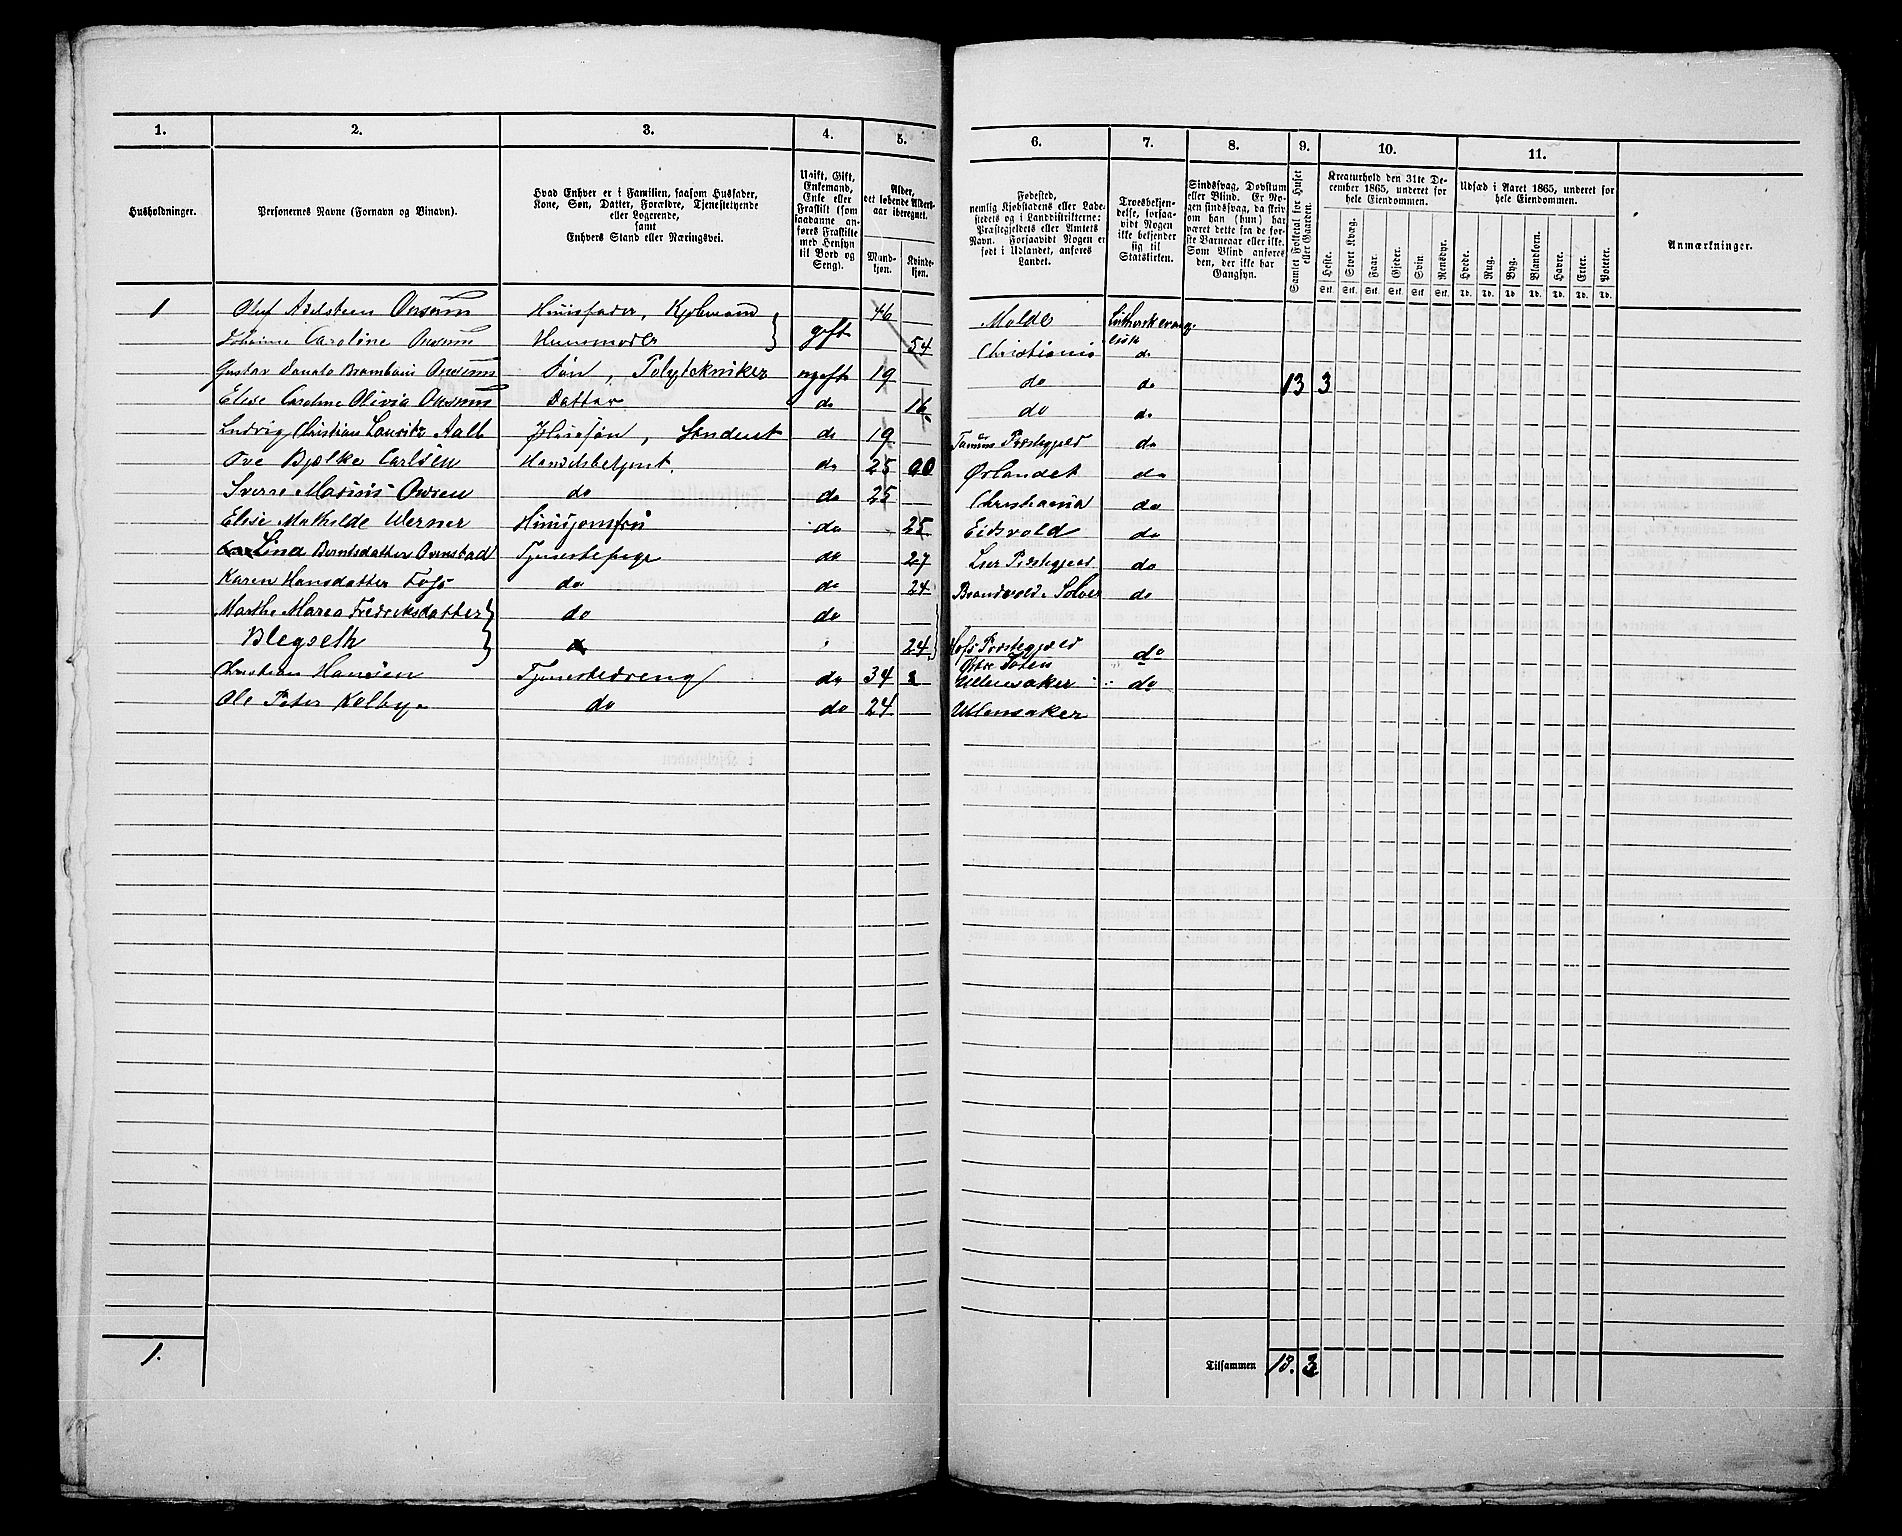 1. 2. 3. 4. 5. 6. 7. 8. 9. 10. 11.
Husholdninger.
Personernes Navne (Fornavn og Binavn).
Hvad Enhver er i Familien, saasom Husfader,
Kone, Søn, Datter, Forældre, Tjenestetyende
eller Logerende,
samt
Enhvers Stand eller Næringsvei.
Ugift, Gift,
Enkemand,
Enke eller
Fraskilt (som
saadanne an-
føres Fraskilte
med Hensyn
til Bord og
Seng).
Alder,
det løbende Alders-
aar iberegnet.
Mand-
kjøn.
Kvinde-
kjøn.
Fødested,
nemlig Kjøbstadens eller Lade-
stedets og i Landdistrikterne:
Præstegjeldets eller Amtets
Navn. Forsaavidt Nogen er
født i Udlandet, anføres
Landet.
Troesbekjen-
delse, forsaa-
vidt Nogen
ikke bekjender
sig til
Statskirken.
Sindssvag, Døvstum
eller Blind. Er No-
gen sindssvag, da skriv
om han (hun) har
været dette fra de før-
ste Barneaar eller ikke.
Som Blind anføres
den, der ikke har
Gangsyn.
Samlet Folketal for Huset
eller Gaarden.
Kreaturhold den 31te De-
cember 1865, underet for
hele Eiendommen.
Heste. Stort Kvæg. Faar. Gjeder. Svin. Rensdyr.
Stk. Stk. Stk. Stk. Stk. Stk.
Udsæd i Aaret 1865, underet for
hele Eiendommen.
Hvede. Rug. Byg. Blandkorn. Havre. Erter. Poteter.
Td. Td. Td. Td. Td. Td. Td.
Anmærkninger.
1 Oluf Adelsteen Onsum Huusfader, Kjøbmand 46 Molde Luthersk evang-
Caroline Onsum Huusmoder gift 54 Christiania do
Gustav Onsum Søn, Polytekniker ugift 19 do do 13 3
Elise Caroline Olivia Onsum Datter do 16 do do
Ludvig Christian Lauritz Aall Huussøn, Student do 19 Præstegjeld do
Ove Bjelke Carlsen Handelsbetjent. do 25 Ørlandet do
Sverre Marius Onsen do do 25 Christiania do
Elise Mathilde Werner Huusjomfru do 25 Eidsvold do
Lina Berntsdatter Ovenstad Tjenestepige do 27 Lier Præstegjeld do
Karen Hansdatter do do 24 Brandvold Soløer do
Marthe Marea Fredriksdatter do do
Blegseth 24 Hofs Præstegjeld do
Østre Toten
Christian Hansen Tjenestedreng do 34 Ullensaker do
Ole Peter Kolbye do do 24 Ullensaker
1. Tilsammen 13. 3